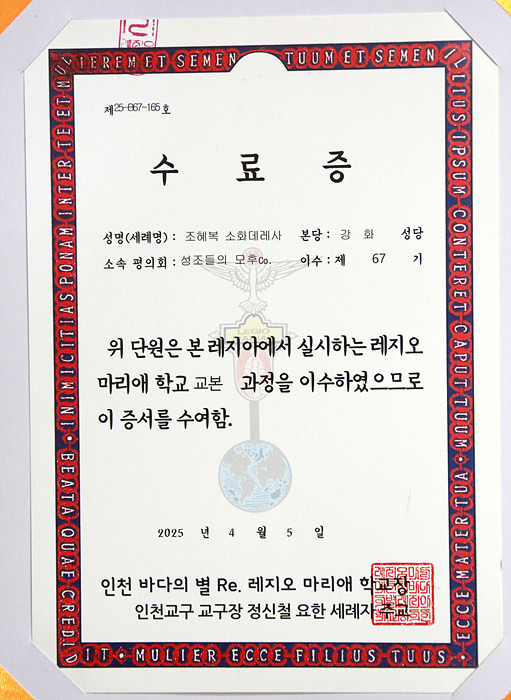 제25-B67-165호
수 료 증
성명(세례명) : 조혜복 소화데레사 본당 : 강 화 성당
소속 평의회 : 성조들의 모후Co. 이수 : 제 67 기
LEGIO
위 단원은 본 레지아에서 실시하는 레지오
마리애 학교 교본 과정을 이수하였으므로
이 증서를 수여함.
2025 년 4 월 5 일
인천 바다의 별 Re. 레지오 마리애 학교장
인천교구 교구장 정신철 요한 세례자 주교
INIMICITIAS PONAM INTER TE ET MULIEREM ET SEMEN TUUM ET SEMEN ILLIUS IPSUM CONTERET CAPUT TUUM • AUTEM
ECCE MATER TUA • MULIER ECCE FILIUS TUUS • BEATA QUAE CREDIDIT •